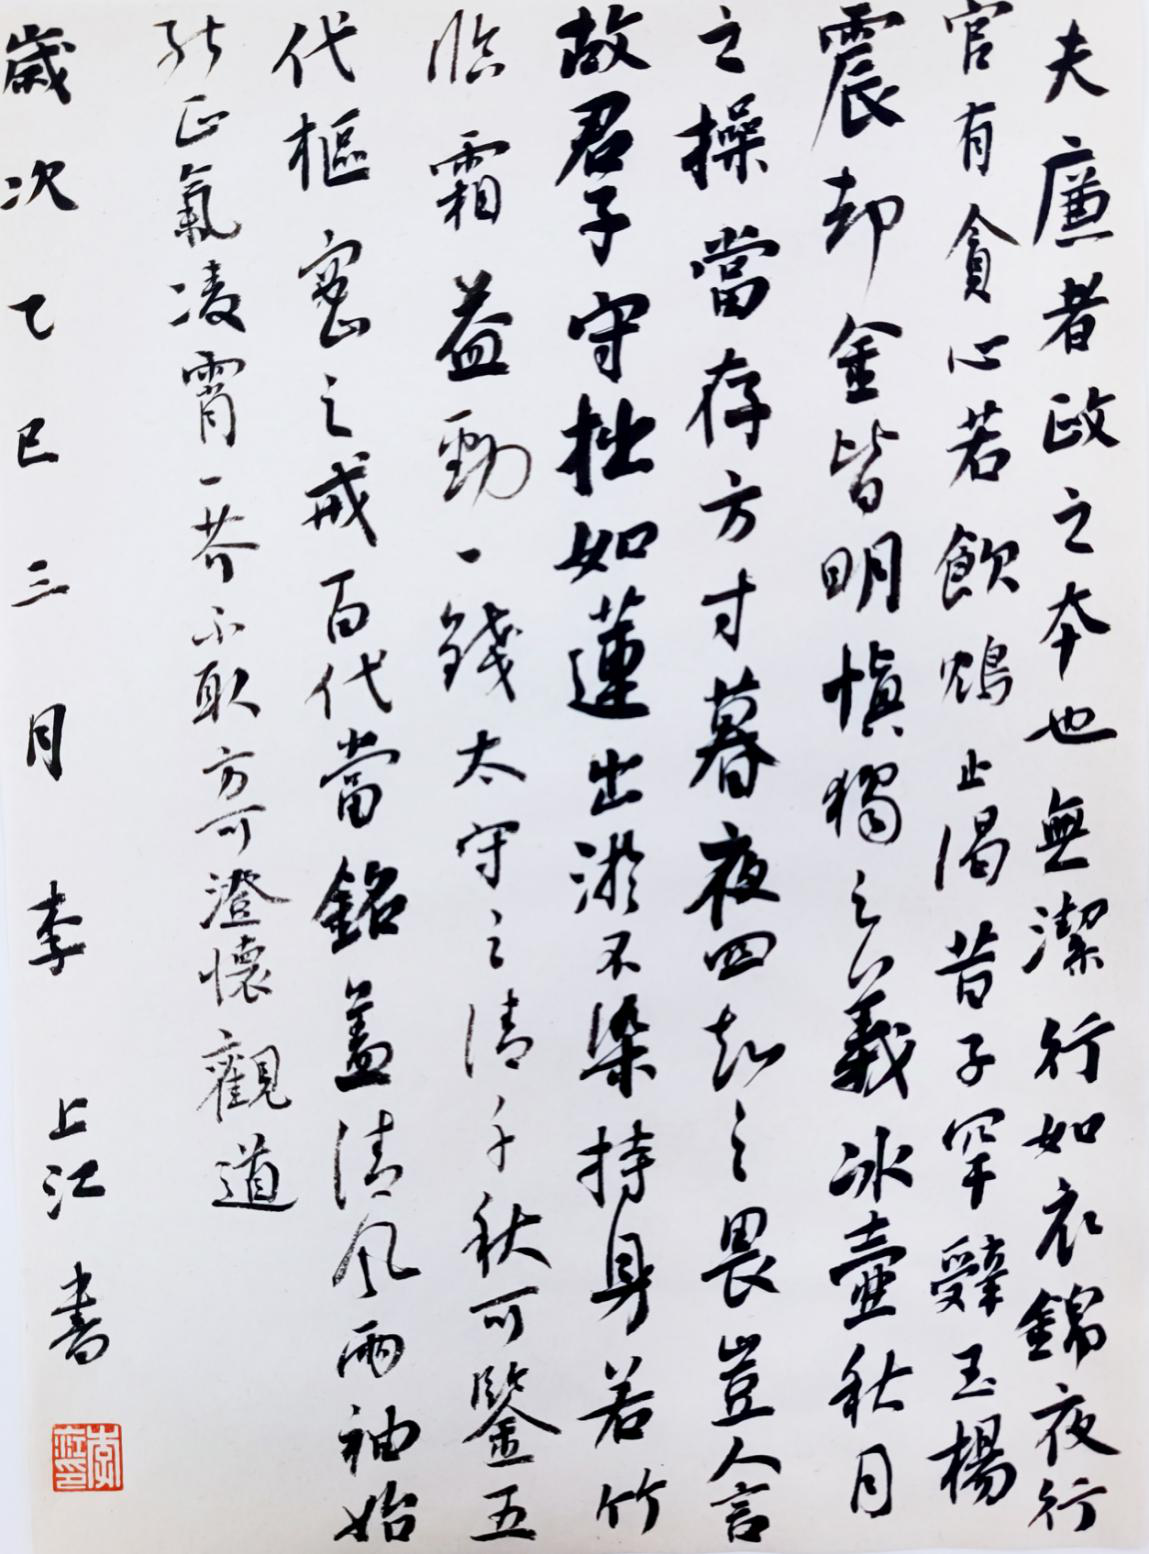 夫廉者政之本也無潔行如衣錦夜行
官有貪心若飲鴆止渴昔子罕辭玉楊
震却金皆明慎獨之義冰壺秋月
之操當存方寸暮夜四知之畏豈人言
故君子守拙如蓮出淤不染持身若竹
臨霜益勁一錢太守之清千秋可鑒五
代樞密之戒百代當銘蓋清風兩袖始
能正氣凌霄一芥不取方可澄懷觀道
歲次乙巳三月李上江書